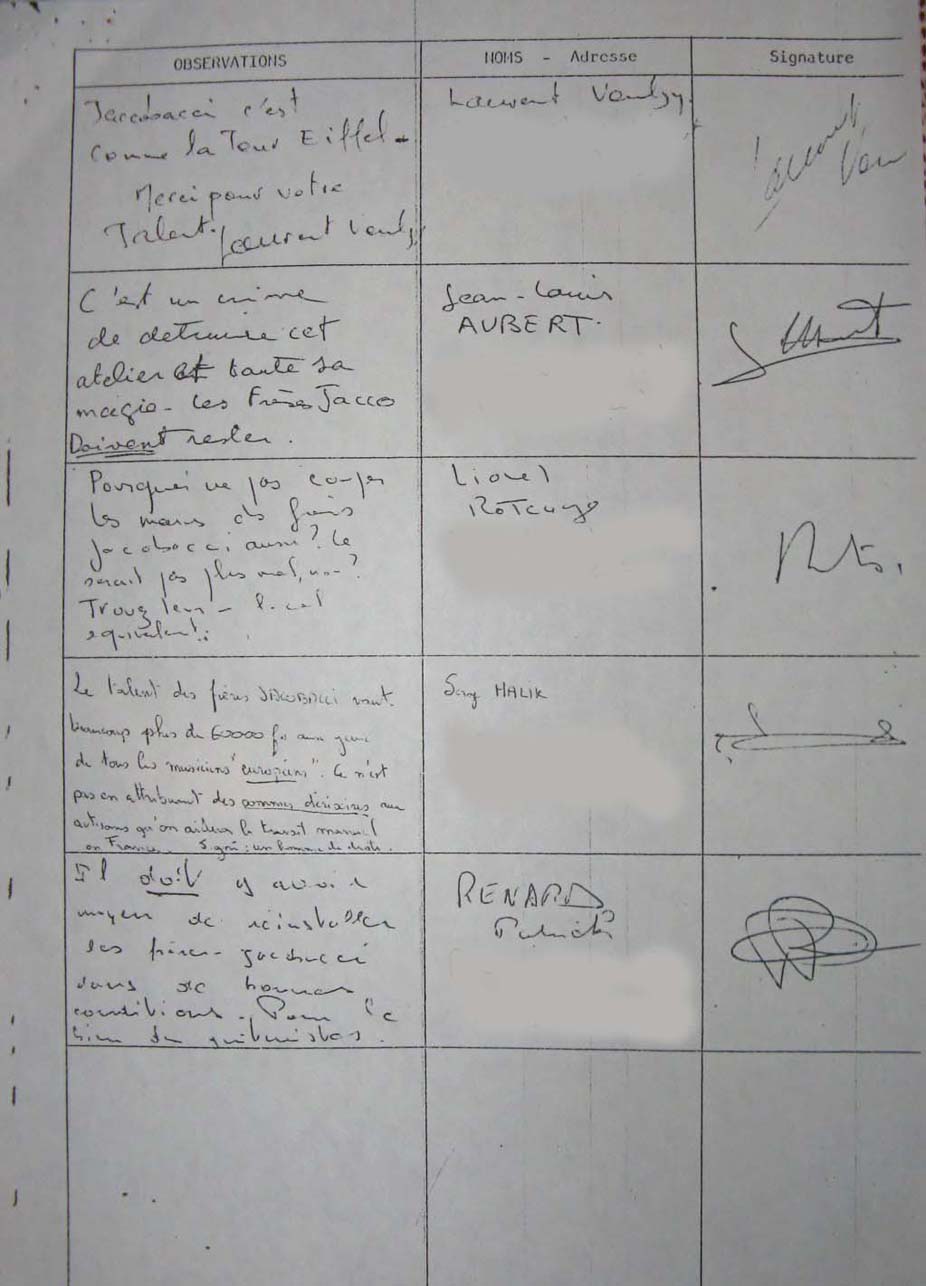 OBSERVATIONS
NOMS - Adresse
Signature
Jaccobacci c'est
comme la Tour Eiffel -
Merci pour votre
Talent. Laurent Voulzy
Laurent Voulzy.
Laurent
Vou
C'est un crime
de detruire cet
atelier et toute sa
magie - les Frères Jacco
Doivent rester.
Jean-Louis
AUBERT.
Pourquoi ne pas couper
les mains des frères
Jacobacci aussi? Ce
serait pas plus mal, non?
Trouvez leur - local
équivalent.
Lionel
Le talent des frères JACOBACCI vaut
beaucoup plus de 60000 fr aux yeux
de tous les musiciens "européens". Ce n'est
pas en attribuant des sommes dérisoires aux
artisans qu'on aidera le travail manuel
en France. Signé: un homme de droite.
Serge MALIK
Il doit y avoir
moyen de réinstaller
les frères Jacobacci
dans de bonnes
conditions - Pour le
bien des guitaristes.
RENARD
Patrick